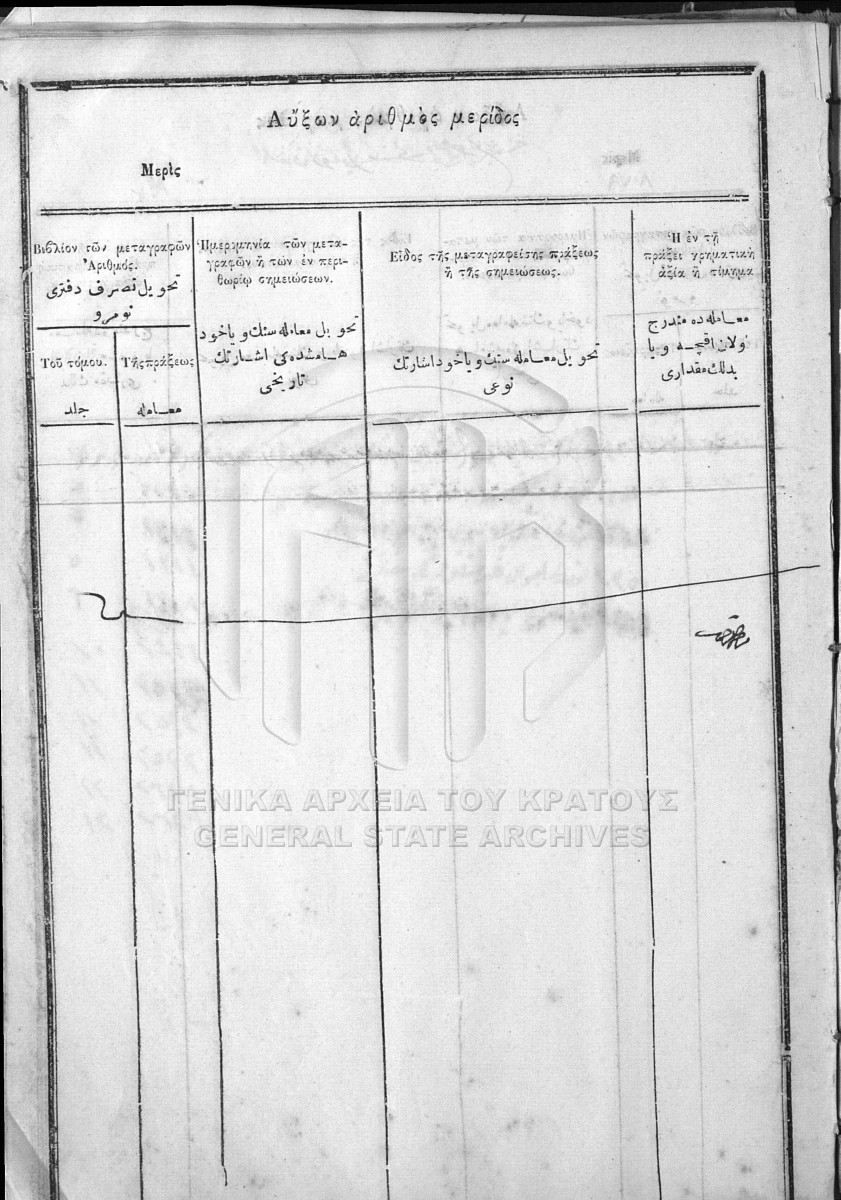 Αὔξων ἀριθμὸς μερίδος
Μερὶς
Βιβλίον τῶν μεταγραφῶν
Ἀριθμός.
تحويل تصرف دفترى
نومرو
Τοῦ τόμου.
جلد
Τῆς πράξεως
معامله
Ἡμερομηνία τῶν μετα-
γραφῶν ἢ τῶν ἐν περι-
θωρίῳ σημειώσεων.
تحويل معامله سنك وياخود
هامشده كى اشارتك
تاريخى
Εἶδος τῆς μεταγραφείσης πράξεως
ἢ τῆς σημειώσεως.
تحويل معامله سنك وياخود اشارتك
نوعى
Ἡ ἐν τῇ
πράξει χρηματικὴ
ἀξία ἢ τίμημα
معامله ده مندرج
اولان اقچه و يا
بدلك مقدارى
ΓΕΝΙΚΑ ΑΡΧΕΙΑ ΤΟΥ ΚΡΑΤΟΥΣ
GENERAL STATE ARCHIVES